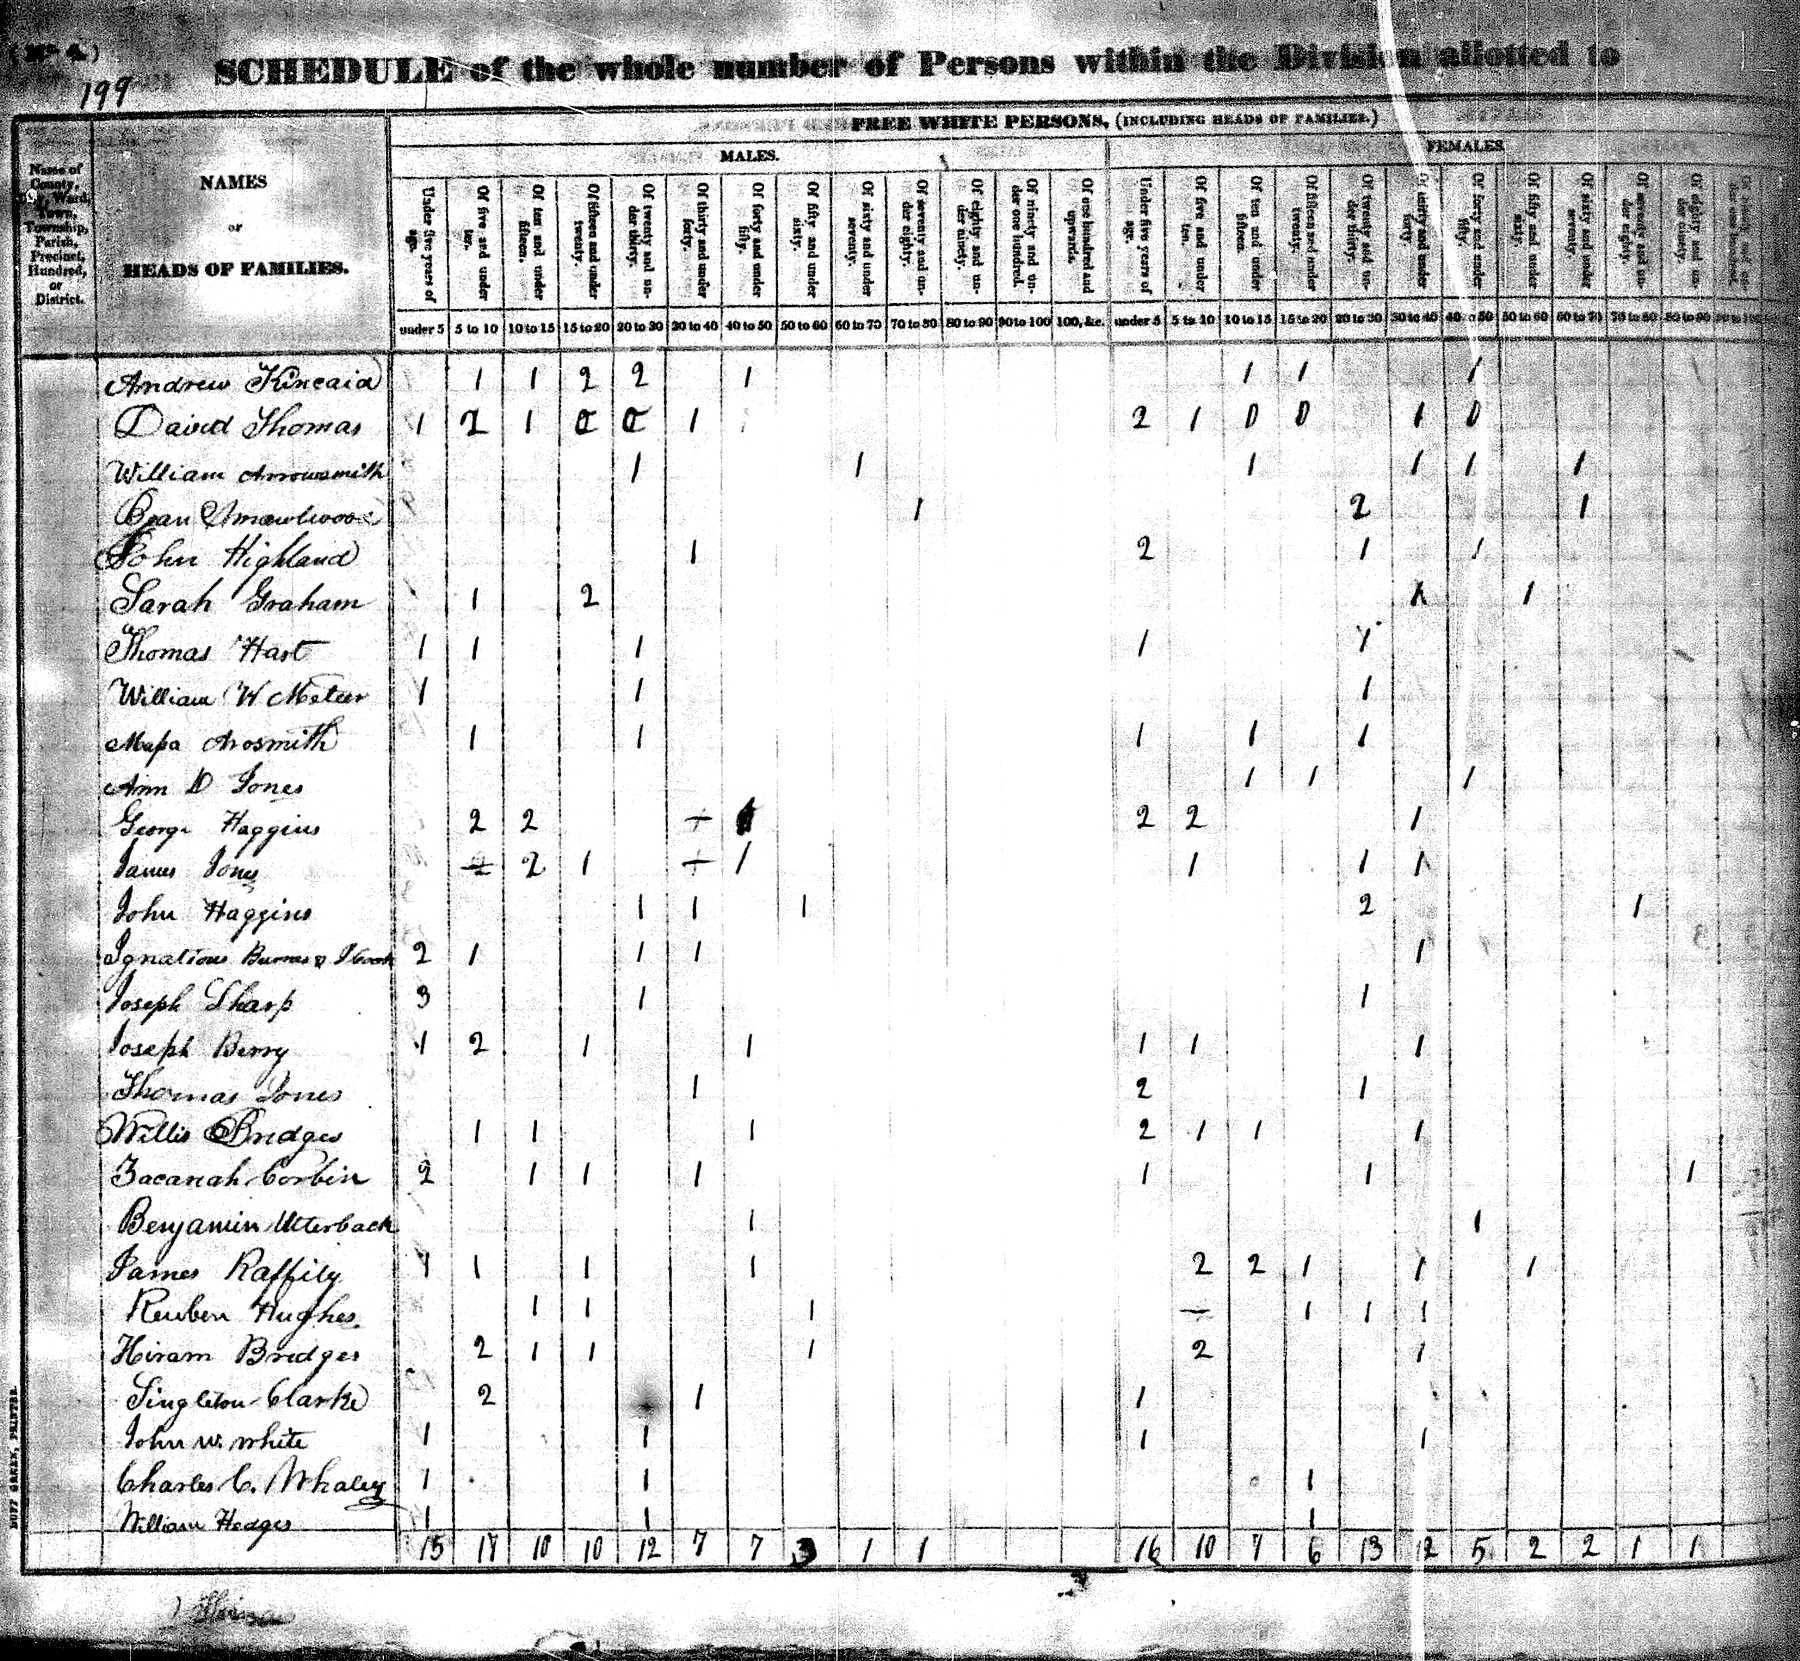 (No 4)
199
SCHEDULE of the whole number of Persons within the Division allotted to
FREE WHITE PERSONS, (INCLUDING HEADS OF FAMILIES.)
MALES. FEMALES.
Name of County, Ward, Town, Township, Parish, Precinct, Hundred, or District.
NAMES
or
HEADS OF FAMILIES.
Under five years of age. Of five and under ten. Of ten and under fifteen. Of fifteen and under twenty. Of twenty and under thirty. Of thirty and under forty. Of forty and under fifty. Of fifty and under sixty. Of sixty and under seventy. Of seventy and under eighty. Of eighty and under ninety. Of ninety and under one hundred. Of one hundred and upwards. Under five years of age. Of five and under ten. Of ten and under fifteen. Of fifteen and under twenty. Of twenty and under thirty. Of thirty and under forty Of forty and under fifty. Of fifty and under sixty. Of sixty and under seventy. Of seventy and under eighty. Of eighty and under ninety.
under 5 5 to 10 10 to 15 15 to 20 20 to 30 30 to 40 40 to 50 50 to 60 60 to 70 70 to 80 80 to 90 90 to 100 100, &c. under 5 5 to 10 10 to 15 15 to 20 20 to 30 30 to 40 40 to 50 50 to 60 60 to 70 70 to 80 80 to 90 90 to 100
Andrew Kincaid 1 1 2 2 1 1 1 1
David Thomas 1 2 1 0 0 1 2 1 0 0 1 0
William Arrowsmith 1 1 1 1 1 1
1 2 1
John Highland 1 2 1 1
Sarah Graham 1 2 1 1
Thomas Hart 1 1 1 1 1
William W Meteer 1 1 1
Arosmith 1 1 1 1 1
Ann D Jones 1 1 1
George Haggins 2 2 1 2 2 1
James Jones 2 2 1 1 1 1 1
John Haggins 1 1 1 2 1
Ignatious 2 1 1 1 1
Joseph Sharp 3 1 1
Joseph Berry 1 2 1 1 1 1 1
Thomas Jones 1 2 1
Willis Bridges 1 1 1 2 1 1 1
Zacariah Corbin 2 1 1 1 1 1 1
Benjamin Utterback 1 1
James Raffity 1 1 1 1 2 2 1 1 1
Reuben Hughes 1 1 1 1 1 1
Hiram Bridges 2 1 1 1 2 1
Singleton Clarke 2 1 1
John W. White 1 1 1 1
Charles C. Whaley 1 1 1
William Hedges 1 1 1
15 17 10 10 12 7 7 3 1 1 16 10 7 6 13 12 5 2 2 1 1
DUFF GREEN, PRINTER.